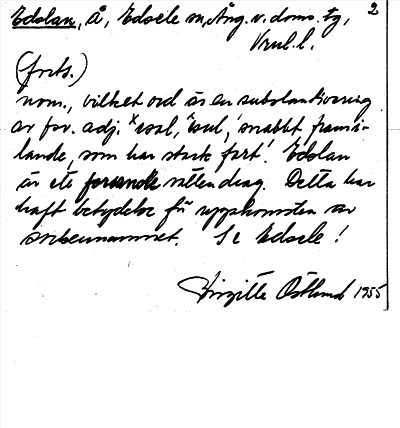 Edslan, å, Edsele sn, Ång. v. doms. tg, 2
Vrul. l.
(forts.)
nom., vilket ord är en substantivering
av fsv. adj. *esal, *esul, 'snabbt framåt-
ilande, som har stark fart'. Edslan
är ett forsande vattendrag. Detta har
haft betydelse för uppkomsten av
sockennamnet. Se Edsele!
Birgitta Östlund 1955